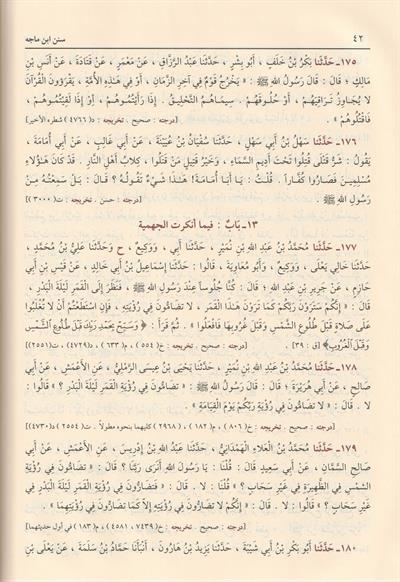 ٤٢ سنن ابن ماجه
١٧٥ـ حَدَّثَنَا بَكْرُ بْنُ خَلَفٍ، أَبُو بِشْرٍ، حَدَّثَنَا عَبْدُ الرَّزَّاقِ، عَنْ مَعْمَرٍ، عَنْ قَتَادَةَ، عَنْ أَنَسِ بْنِ
مَالِكٍ؛ قَالَ: قَالَ رَسُولُ اللهِ ﷺ: «يَخْرُجُ قَوْمٌ فِي آخِرِ الزَّمَانِ، أَوْ فِي هَذِهِ الأُمَّةِ، يَقْرَؤُونَ الْقُرْآنَ
لَا يُجَاوِزُ تَرَاقِيَهُمْ، أَوْ حُلُوقَهُمْ. سِيمَاهُمُ التَّحْلِيقُ. إِذَا رَأَيْتُمُوهُمْ، أَوْ إِذَا لَقِيتُمُوهُمْ،
فَاقْتُلُوهُمْ». [درجته: صحيح. تخريجه: د(٤٧٦٦) شطره الأخير]
١٧٦ـ حَدَّثَنَا سَهْلُ بْنُ أَبِي سَهْلٍ، حَدَّثَنَا سُفْيَانُ بْنُ عُيَيْنَةَ، عَنْ أَبِي غَالِبٍ، عَنْ أَبِي أُمَامَةَ،
يَقُولُ: شَرُّ قَتْلَى قُتِلُوا تَحْتَ أَدِيمِ السَّمَاءِ، وَخَيْرُ قَتِيلٍ مَنْ قَتَلُوا، كِلَابُ أَهْلِ النَّارِ. قَدْ كَانَ هَؤُلَاءِ
مُسْلِمِينَ فَصَارُوا كُفَّاراً. قُلْتُ: يَا أَبَا أُمَامَةَ! هَذَا شَيْءٌ تَقُولُهُ؟ قَالَ: بَلْ سَمِعْتُهُ مِنْ
رَسُولِ اللهِ ﷺ. [درجته: حسن. تخريجه: ت(٣٠٠٠)]
١٣ـ بَابٌ: فيما أنكرت الجهمية
١٧٧ـ حَدَّثَنَا مُحَمَّدُ بْنُ عَبْدِ اللهِ بْنِ نُمَيْرٍ، حَدَّثَنَا أَبِي، وَوَكِيعٌ، ح وَحَدَّثَنَا عَلِيُّ بْنُ مُحَمَّدٍ،
حَدَّثَنَا خَالِي يَعْلَى، وَوَكِيعٌ، وَأَبُو مُعَاوِيَةَ، قَالُوا: حَدَّثَنَا إِسْمَاعِيلُ بْنُ أَبِي خَالِدٍ، عَنْ قَيْسِ بْنِ أَبِي
حَازِمٍ، عَنْ جَرِيرِ بْنِ عَبْدِ اللهِ، قَالَ: كُنَّا جُلُوساً عِنْدَ رَسُولِ اللهِ ﷺ، فَنَظَرَ إِلَى الْقَمَرِ لَيْلَةَ الْبَدْرِ،
قَالَ: «إِنَّكُمْ سَتَرَوْنَ رَبَّكُمْ كَمَا تَرَوْنَ هَذَا الْقَمَرَ، لَا تَضَامُّونَ فِي رُؤْيَتِهِ، فَإِنِ اسْتَطَعْتُمْ أَنْ لَا تُغْلَبُوا
عَلَى صَلَاةٍ قَبْلَ طُلُوعِ الشَّمْسِ وَقَبْلَ غُرُوبِهَا فَافْعَلُوا». ثُمَّ قَرَأَ: ﴿وَسَبِّحْ بِحَمْدِ رَبِّكَ قَبْلَ طُلُوعِ الشَّمْسِ
وَقَبْلَ الْغُرُوبِ﴾ [ق: ٣٩]. [درجته: صحيح. تخريجه: خ(٥٥٤)، م(٦٣٣)، د(٤٧٢٩)، ت(٢٥٥١)]
١٧٨ـ حَدَّثَنَا مُحَمَّدُ بْنُ عَبْدِ اللهِ بْنِ نُمَيْرٍ، حَدَّثَنَا يَحْيَى بْنُ عِيسَى الرَّمْلِيُّ، عَنِ الأَعْمَشِ، عَنْ أَبِي
صَالِحٍ، عَنْ أَبِي هُرَيْرَةَ؛ قَالَ: قَالَ رَسُولُ اللهِ ﷺ: «تَضَامُّونَ فِي رُؤْيَةِ الْقَمَرِ لَيْلَةَ الْبَدْرِ؟» قَالُوا:
لَا. قَالَ: «فَكَذَلِكَ لَا تَضَامُّونَ فِي رُؤْيَةِ رَبِّكُمْ يَوْمَ الْقِيَامَةِ».
[درجته: صحيح. تخريجه: خ(٨٠٦)، م(١٨٢، ٢٩٦٨) كليهما بنحوه مطولاً. ت(٢٥٥٤) د(٤٧٣٠)]
١٧٩ـ حَدَّثَنَا مُحَمَّدُ بْنُ الْعَلَاءِ الْهَمْدَانِيُّ، حَدَّثَنَا عَبْدُ اللهِ بْنُ إِدْرِيسَ، عَنِ الأَعْمَشِ، عَنْ أَبِي
صَالِحٍ السَّمَّانِ، عَنْ أَبِي سَعِيدٍ قَالَ: قُلْنَا: يَا رَسُولَ اللهِ أَنَرَى رَبَّنَا؟ قَالَ: «تَضَامُّونَ فِي رُؤْيَةِ
الشَّمْسِ فِي الظَّهِيرَةِ فِي غَيْرِ سَحَابٍ؟» قُلْنَا: لَا. قَالَ: «فَتَضَارُّونَ فِي رُؤْيَةِ الْقَمَرِ لَيْلَةَ الْبَدْرِ فِي
غَيْرِ سَحَابٍ؟» قَالُوا: لَا. قَالَ: «إِنَّكُمْ لَا تَضَارُّونَ فِي رُؤْيَتِهِ إِلَّا كَمَا تَضَارُّونَ فِي رُؤْيَتِهِمَا».
[درجته: صحيح. تخريجه: خ(٧٤٣٩، ٤٥٨١)، م(١٨٣) في أول حديثهما]
١٨٠ـ حَدَّثَنَا أَبُو بَكْرِ بْنُ أَبِي شَيْبَةَ، حَدَّثَنَا يَزِيدُ بْنُ هَارُونَ، أَنْبَأَنَا حَمَّادُ بْنُ سَلَمَةَ، عَنْ يَعْلَى بْنِ